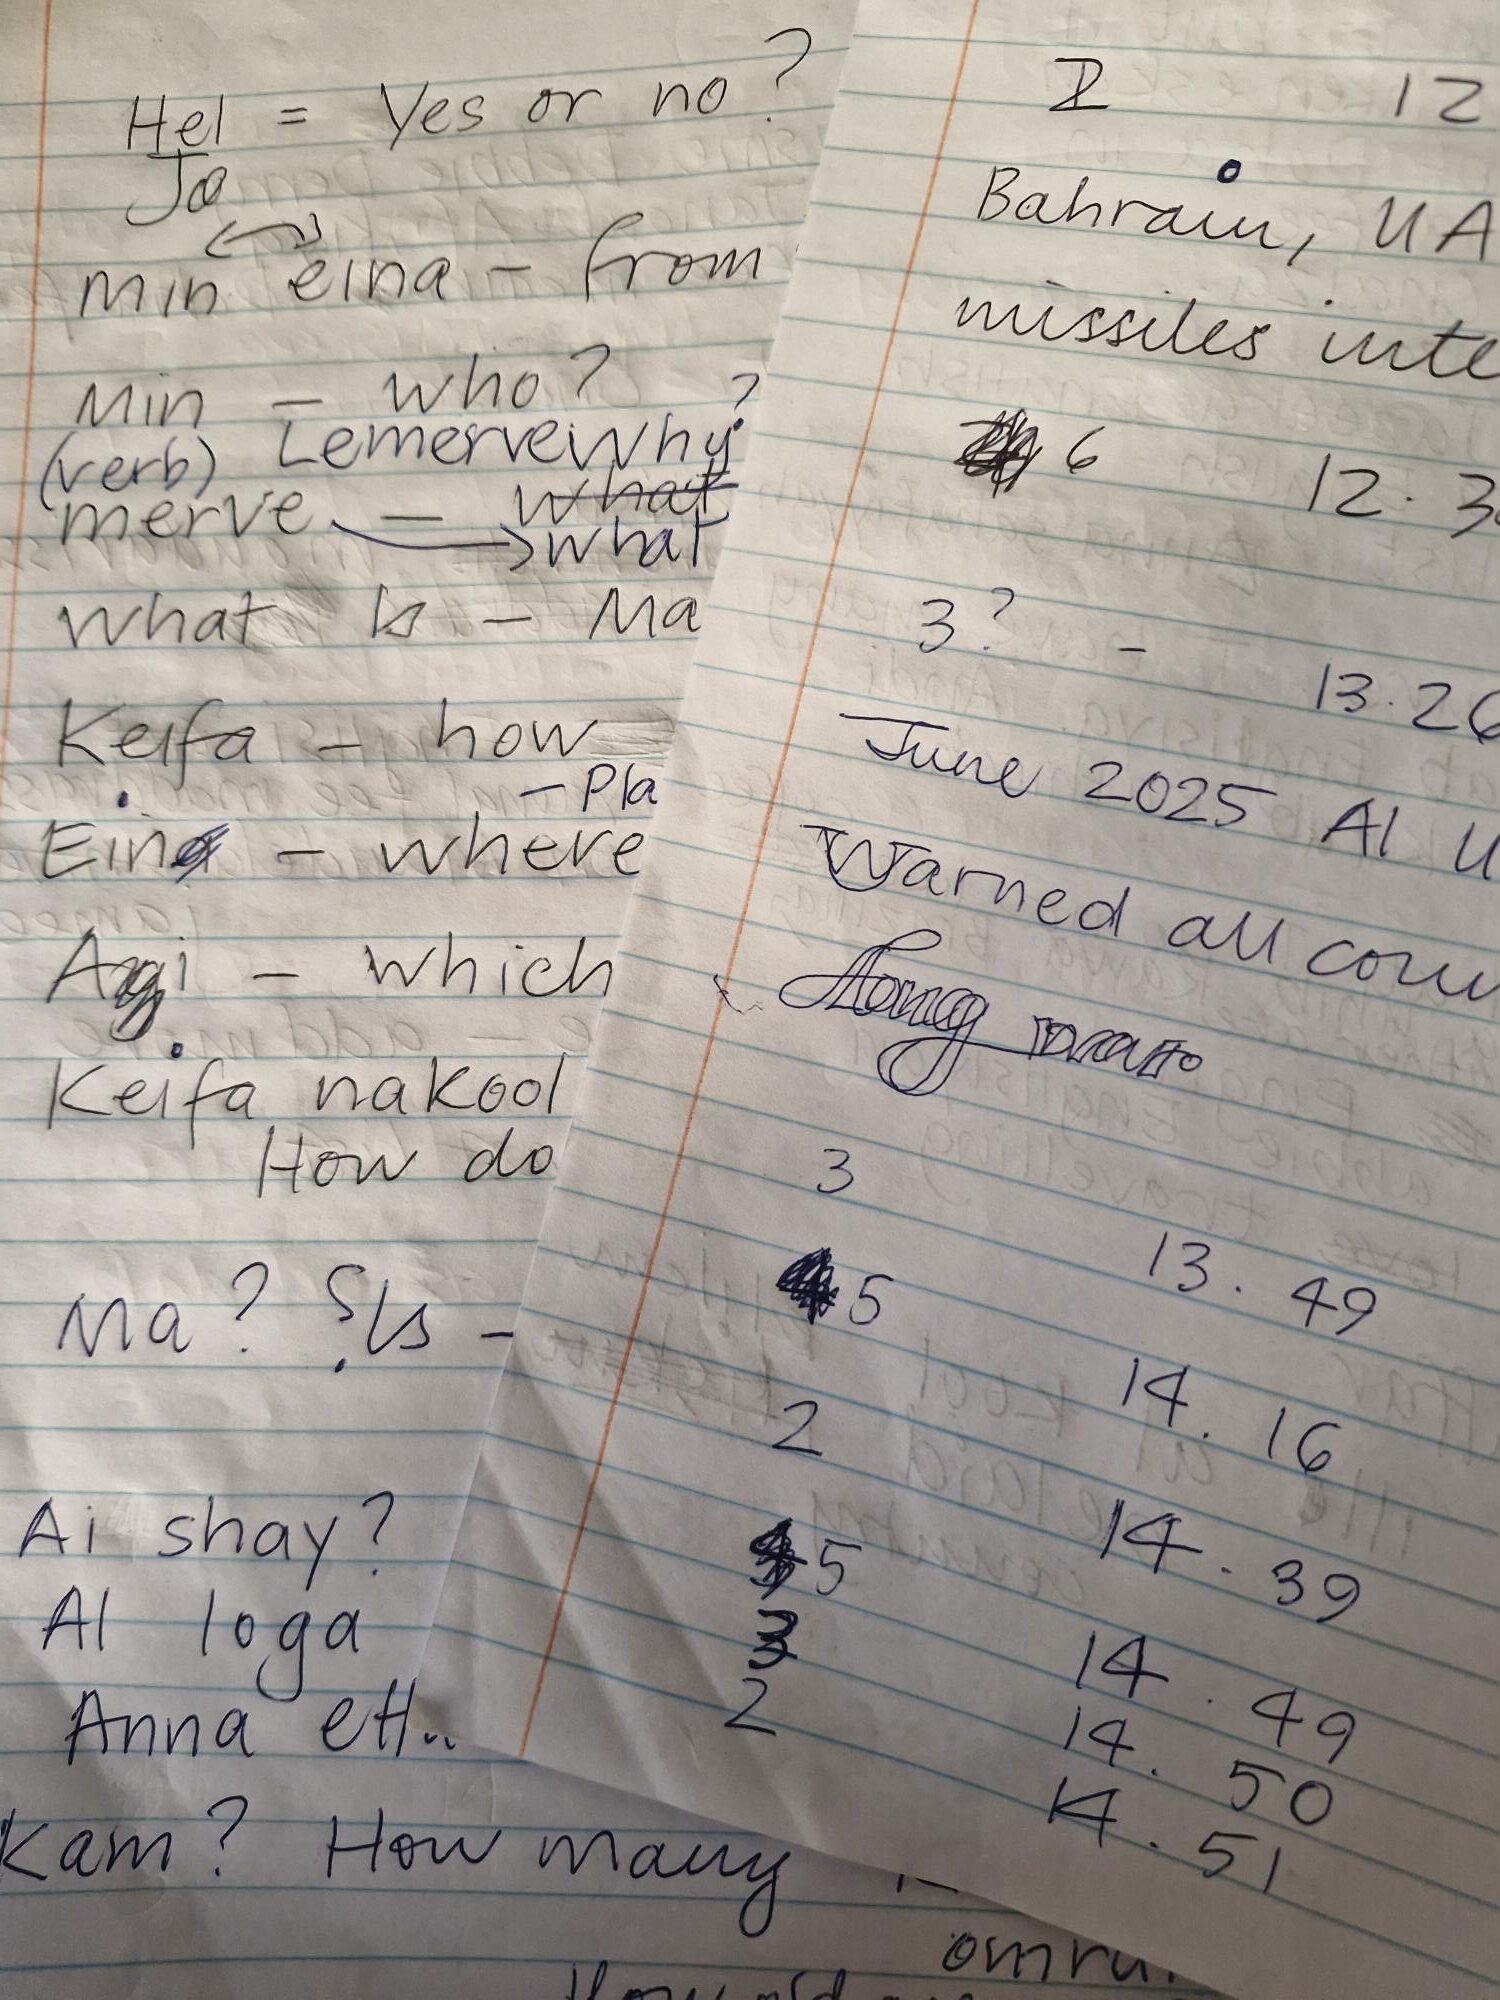 Hel = Yes or no?
Jo
Min eina - from
Min - who?
(verb) Lemerve Why?
merve - what
what
What is - Ma
Keifa - how
- Pla
Eina - where
Agi - which
Keifa nakool
How do
Ma? ؟ Is -
Ai shay?
Al loga
Anna ett..
Kam? How many
omru
How old are
I 12
Bahrain, UA
missiles inte
6 12.3
3? - 13.26
June 2025 Al U
Warned all coun
3
13.49
5
14.16
2
14.39
5
14.49
3
14.50
2
14.51